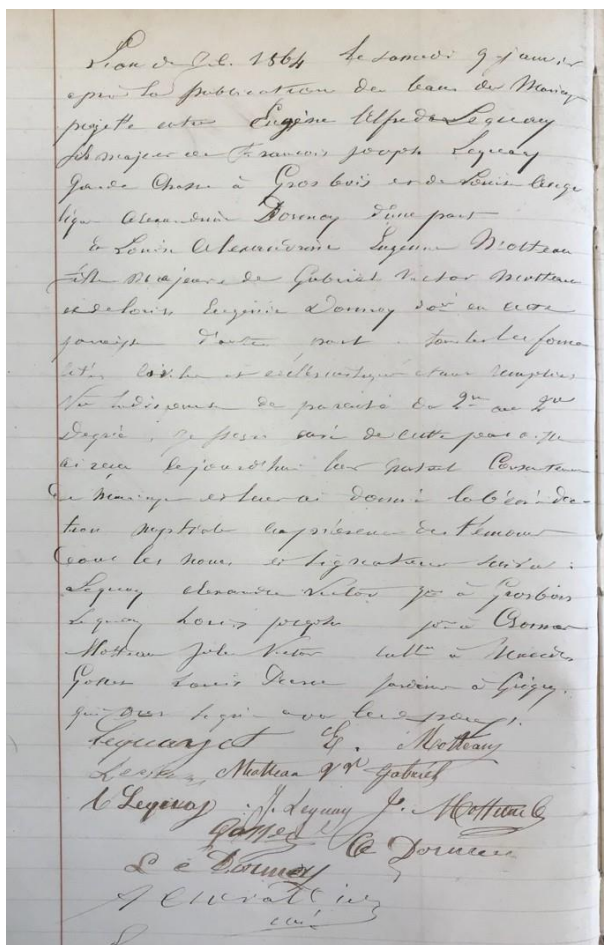 L'an de J.C. 1864 le samedi 9 janvier
après la publication des bans de Mariage
projetté entre Eugène Alfred Lequay
fils majeur de François joseph Lequay
Garde Chasse à Grosbois et de Louise Angé
lique Alexandrine Dormoy d'une part
Et Louise Alexandrine Eugénie Motteau
fille majeure de Gabriel Victor Motteau
et de Louise Eugénie Dormoy en cette
paroisse d'autre part toutes les forma
lités civiles et ecclésiastiques étant remplies
Vu la dispense de parenté du 2me au 2me
Degré, curé de cette paroisse
ai reçu cejourd'hui leur mutuel Consentement
de mariage et leur ai donné la bénédic
tion nuptiale en présence des témoins
dont les noms et signatures suivent :
Lequay Alexandre Victor à Grosbois
Lequay Louis joseph à
Motteau Jules Victor à
Louis jardinier à Grigny.
qui ont signé avec les époux.
E. Motteau
Motteau Gabriel
Lequay J. Lequay J. Motteau
Dormoy
L é Dormoy
curé